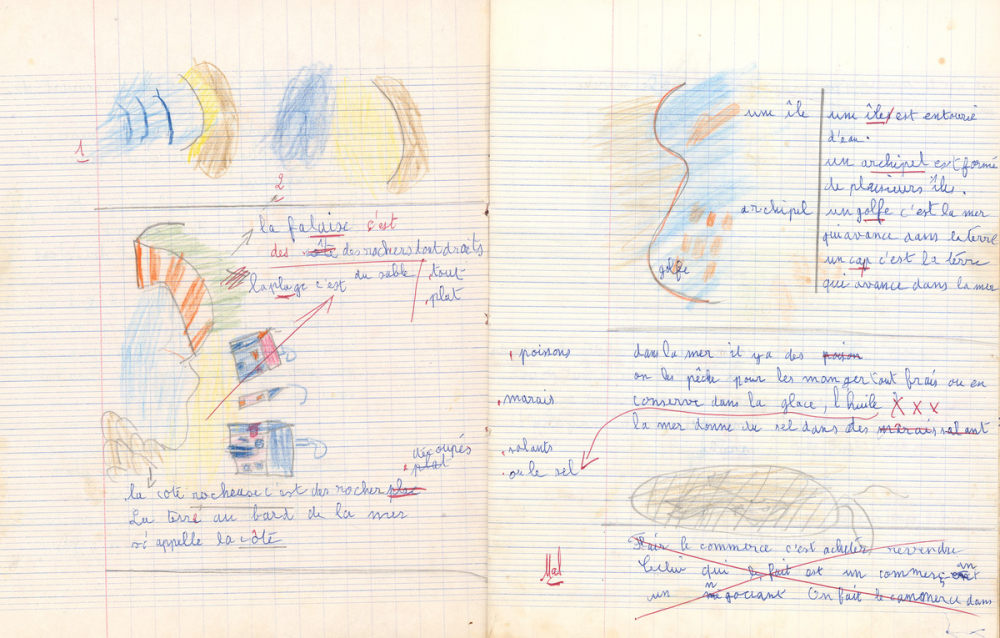 1
2
la falaise c'est
des côte des rochers tout droits
la plage c'est du sable tout
plat
découpés
plat
la cote rocheuse c'est des rocher plac
La terre au bard de la mer
s'appelle la côte
une île
une île est entourée
d'eau.
un archipel est formé
de plusieurs îles.
archipel
un golfe c'est la mer
qui avance dans la terre
un cap c'est la terre
qui avance dans la mer
golfe
poissons
dans la mer il y a des poison
on les pêche pour les manger tout frais ou en
marais
conserve dans la glace, l'huile X X X
la mer donne du sel dans des marais salant
salants
ou le sel
Mal
Flair le commerce c'est acheter, revendre
Celui qui le fait est un commerçant
un négociant On fait le commerce dans